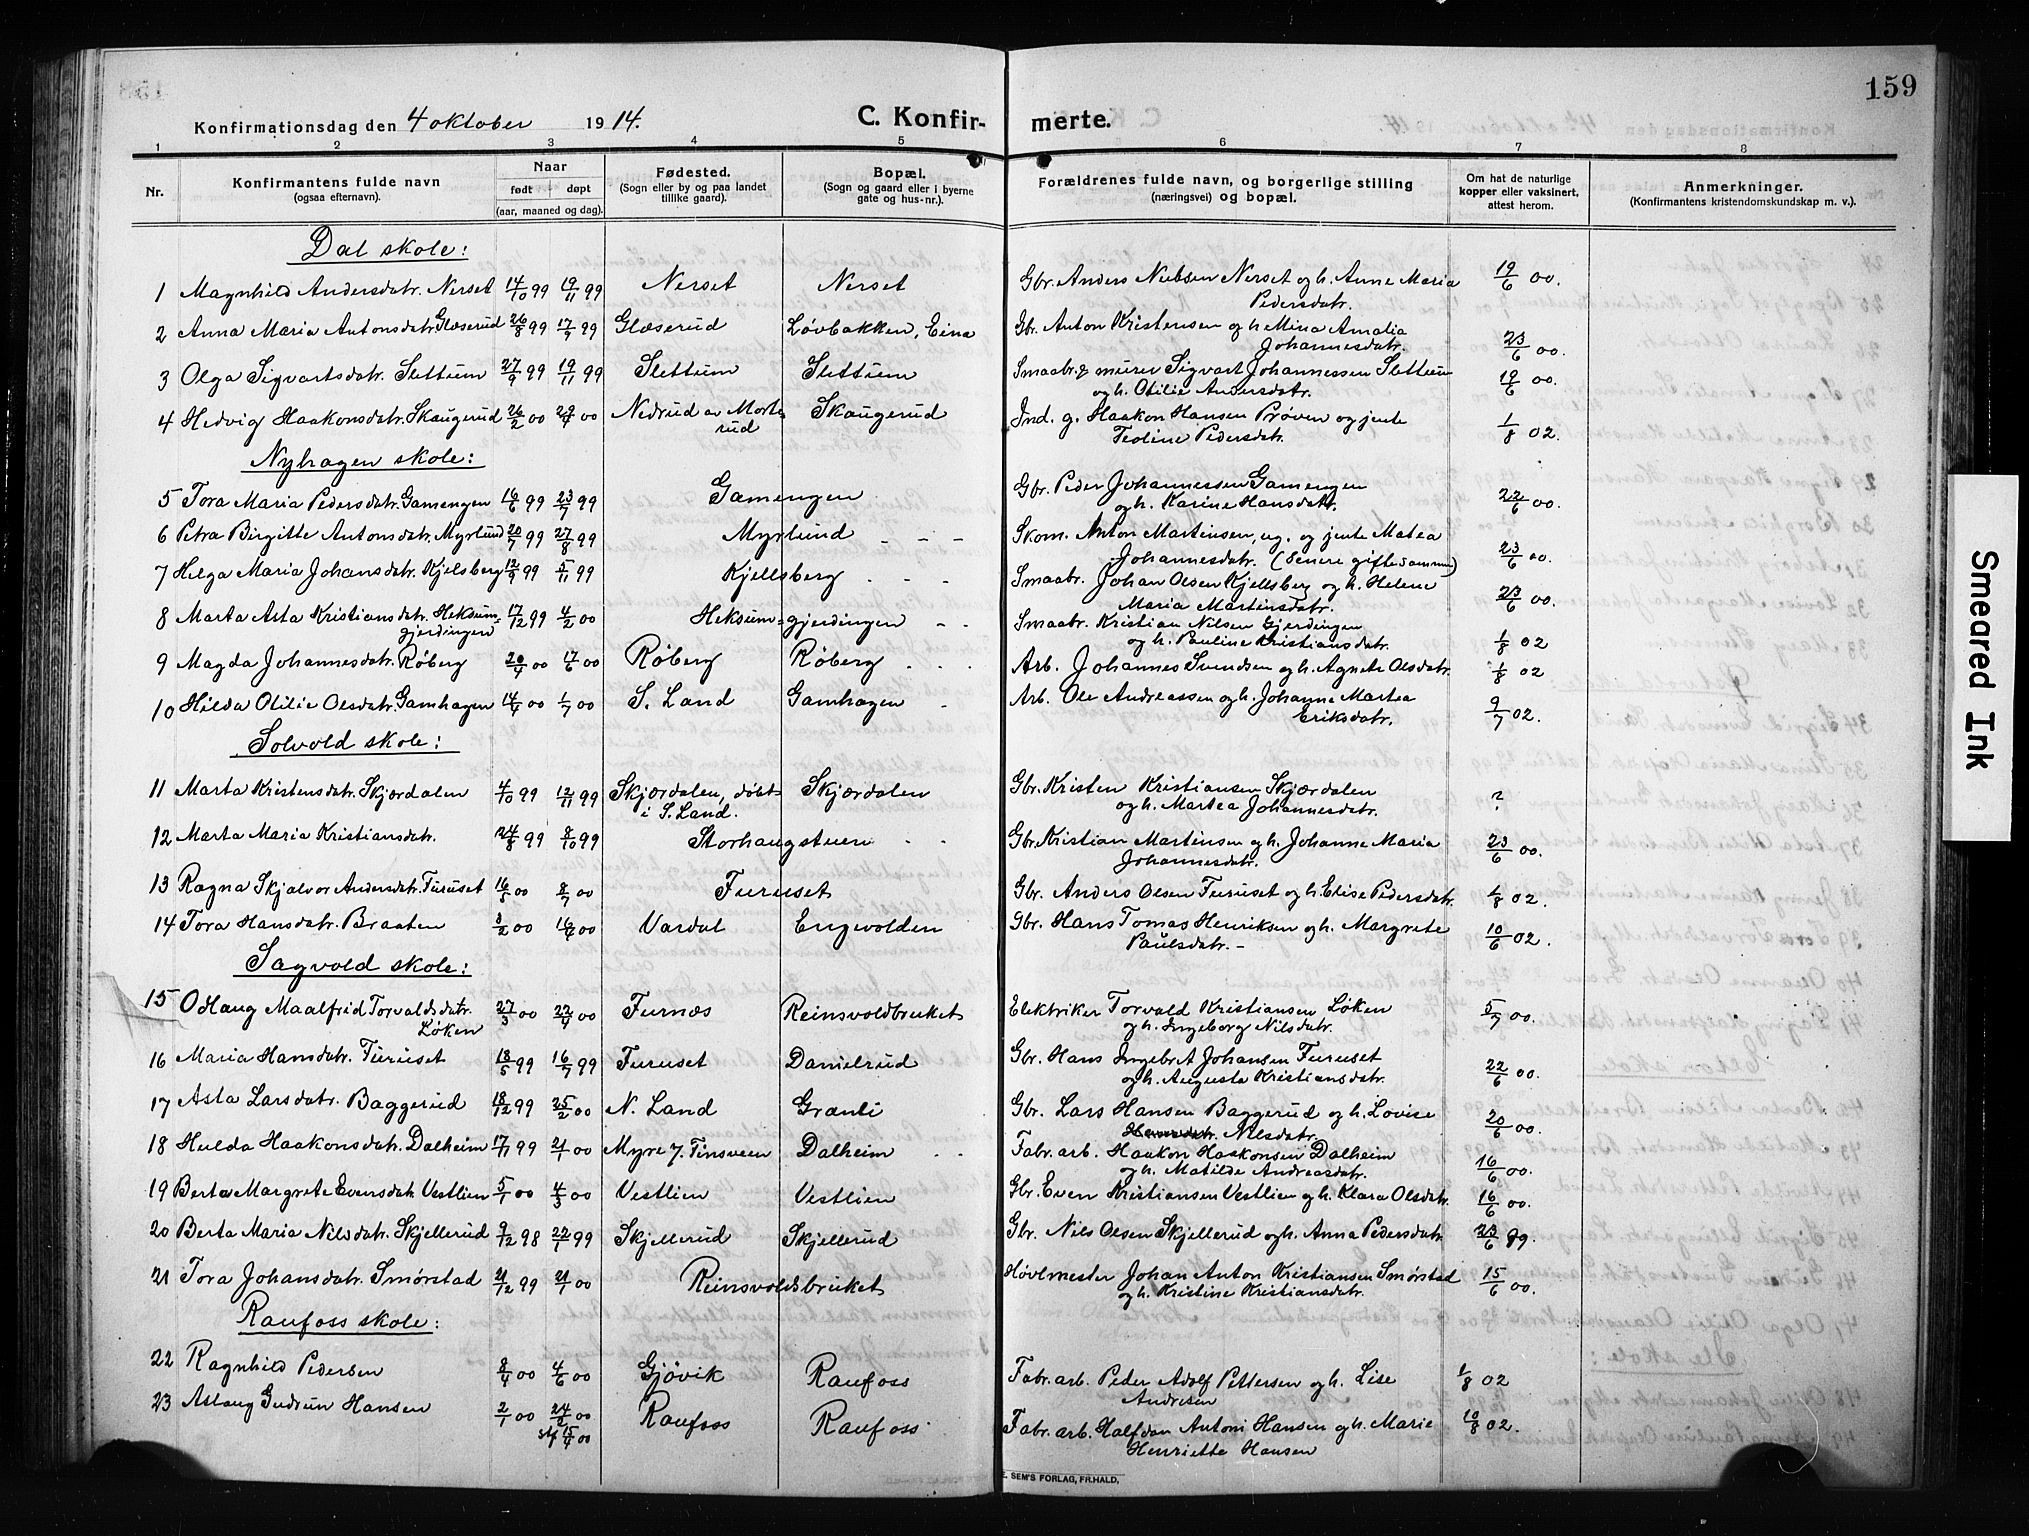 159
Konfirmationsdag den 4 oktober 1914. C. Konfirmerte.
1 2 3 4 5 6 7 8
Nr. Konfirmantens fulde navn (ogsaa efternavn). Naar født døpt (aar, maaned og dag). Fødested. (Sogn eller by og paa landet tillike gaard). Bopæl. (Sogn og gaard eller i byerne gate og hus-nr.). Forældrenes fulde navn, og borgerlige stilling (næringsvei) og bopæl. Om hat de naturlige kopper eller vaksinert, attest herom. Anmerkninger. (Konfirmantens kristendomskundskap m. v.).
Dal skole:
1 Magnhild Andersdatr. Nerset 14/10 99 19/11 99 Nerset Nerset Gbr. Anders Nielsen Nerset og h. Anne Maria 19/6 00.
Pedersdatr.
2 Anna Maria Antonsdatr. Glæserud 26/8 99 17/9 99 Glæserud Løvbakken, Eina Gbr. Anton Kristensen og h. Mina Amalia
Johannesdatr. 23/6 00.
3 Olga Sigvartsdatr. Slettum 27/9 99 19/11 99 Slettum Slettum Smaabr. & murer Sigvart Johannessen Slettum
og h. Otilie Andersdatr. 19/6 00.
4 Hedvig Haakonsdatr. Skaugerud 26/2 00 29/4 00 Nedrud av Morte- Skaugerud Ind. g. Haakon Hansen Prøven og jente
rud Teoline Pedersdatr. 1/8 02.
Nyhagen skole:
5 Tora Maria Pedersdatr. Gamengen 16/6 99 23/7 99 Gamengen Gbr. Peder Johannessen Gamengen
og h. Karine Hansdatr. 22/6 00.
6 Petra Birgitte Antonsdatr. Myrlund 20/7 99 27/8 99 Myrlund - - - Skom. Anton Martinsen, ug. og jente Matea
Johannesdatr. (Senere gifte sammen) 23/6 00.
7 Helga Maria Johansdatr. Kjelsberg 12/9 99 5/11 99 Kjellsberg - - - Smaabr. Johan Olsen Kjellsberg og h. Helene
Maria Martinsdatr. 23/6 00.
8 Marta Asta Kristiansdatr. Heksum- 17/12 99 4/2 00 Heksum-gjerdingen - - Smaabr. Kristian Nilsen Gjerdingen
gjerdingen og h. Pauline Kristiansdatr. 1/8 02
9 Magda Johannesdatr. Røberg 20/4 00 17/6 00 Røberg Røberg . . . Arb. Johannes Svendsen og h. Agnete Olsdatr. 1/8 02
10 Hilda Otilie Olsdatr. Gamhagen 14/4 00 1/7 00 S. Land Gamhagen - Arb. Ole Andreassen og h. Johanne Martea
Eriksdatr. 9/7 02.
Solvold skole:
11 Marta Kristensdatr. Skjærdalen 4/10 99 12/11 99 Skjærdalen, døbt Skjærdalen Gbr. Kristen Kristiansen Skjærdalen
i S. Land. og h. Martea Johannesdatr. ?
12 Marta Maria Kristiansdatr. 24/8 99 8/10 99 Storhaugstuen - - Gbr. Kristian Martinsen og h. Johanne Maria 23/6 00.
Johannesdatr.
13 Ragna Skjalvor Andersdatr. Furuset 16/5 00 8/7 00 Furuset Gbr. Anders Olsen Furuset og h. Elise Pedersdatr. 1/8 02.
14 Tora Hansdatr. Braaten 3/2 00 16/4 00 Vardal Engvolden Gbr. Hans Tomas Henriksen og h. Margrete 10/6 02.
Paulsdatr. -
Sagvold skole:
15 Odlaug Maalfrid Torvaldsdatr. 27/3 00 22/4 00 Furnæs Reinsvoldbruket Elektriker Torvald Kristiansen Løken 5/7 00.
Løken og h. Ingeborg Nilsdatr.
16 Maria Hansdatr. Furuset 18/5 99 16/7 99 Furuset Danielrud Gbr. Hans Ingebret Johansen Furuset
og h. Augusta Kristiansdatr. 22/6 00.
17 Asta Larsdatr. Baggerud 18/12 99 25/2 00 N. Land Granli Gbr. Lars Hansen Baggerud og h. Lovise 20/6 00.
Nilsdatr.
18 Hulda Haakonsdatr. Dalheim 17/11 99 21/1 00 Myre 7. Tinsveen Dalheim - - Fabr. arb. Haakon Haakonsen Dalheim
og h. Matilde Andreasdatr. 16/6 00.
19 Berta Margrete Evensdatr. Vestlien 5/1 00 4/3 00 Vestlien Vestlien Gbr. Even Kristiansen Vestlien og h. Klara Olsdatr. 16/6 00.
20 Berta Maria Nilsdatr. Skjellerud 9/12 98 22/1 99 Skjellerud Skjellerud Gbr. Nils Olsen Skjellerud og h. Anna Pedersdatr. 23/6 99.
21 Tora Johansdatr. Smørstad 21/12 99 21/1 00 Reinsvoldsbruket Høvlmester Johan Anton Kristiansen Smørstad 15/6 00.
og h. Kristine Kristiansdatr.
Raufoss skole:
22 Ragnhild Pedersen 8/4 00 4/6 00 Gjøvik Raufoss Fabr. arb. Peder Adolf Pettersen og h. Lise 1/8 02
Andresen
23 Aslaug Gudrun Hansen 2/1 00 24/2 00 Raufoss Raufoss. Fabr. arb. Halfdan Antoni Hansen og h. Marie 10/8 02.
stf 15/4 00 Henriette Hansen
E. SEM'S FORLAG, FR.HALD.
Smeared Ink